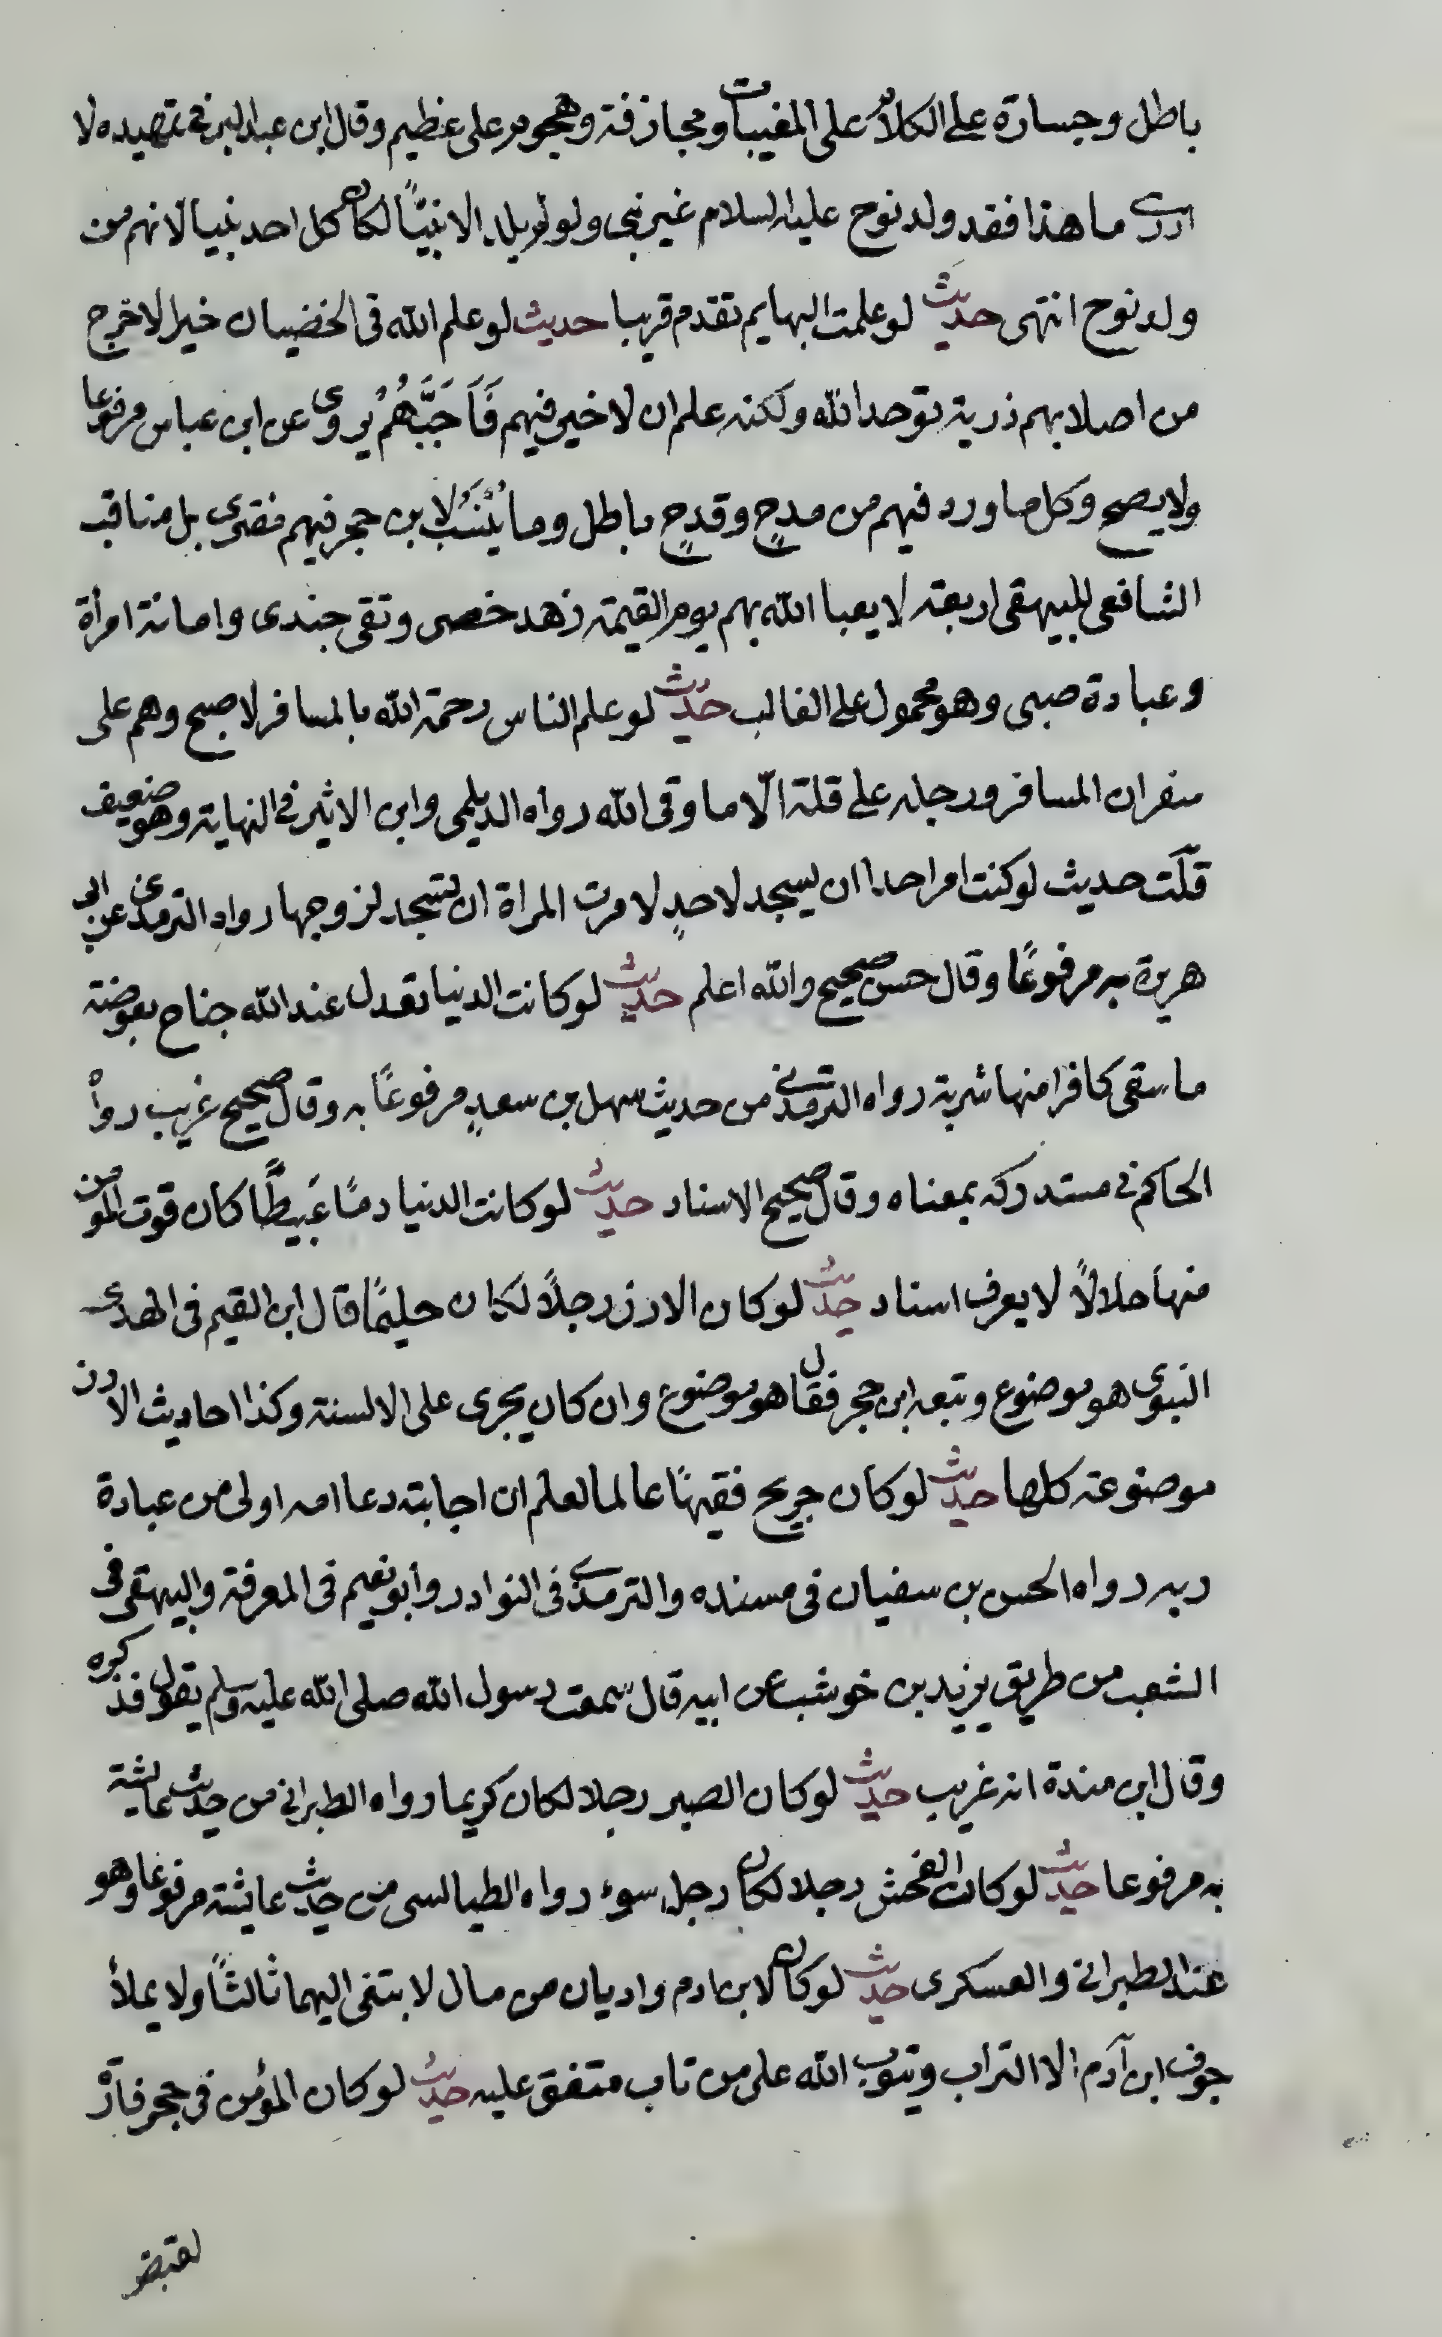 باطل وجسارة على الكلام على المغيبات ومجازفة وهجوم على عظيم وقال ابن عبد البر في تمهيده لا
ادرى ما هذا فقد ولد نوح عليه السلام غير نبى ولو لم يلد الا نبيًّا لكان كل احد نبيا لانهم من
ولد نوح انتهى حديث لو علمت البهايم تقدم قريبا حديث لو علم الله فى الخصيان خيرا لاخرج
من اصلابهم ذرية توحد الله ولكنه علم ان لا خير فيهم فَاَجَبَّهُمْ يروى عن ابن عباس مرفوعا
ولا يصح وكل ما ورد فيهم من مدحٍ وقدحٍ باطل وما يُنْسَبُ لابن حجر فيهم مفترى بل مناقب
الشافعى للبيهقى اربعة لا يعبا الله بهم يوم القيمة زهد خصى وتقى جندى وامانة امرأة
وعبادة صبى وهو محمول على الغالب حديث لو علم الناس رحمة الله بالمسافر لاصبح وهم على
سفر ان المسافر ورجله على قلة الّا ما وقى الله رواه الديلمى وابن الاثير فى النهاية وهو ضعيف
قلت حديث لو كنت امرا احدا ان يسجد لاحدٍ لامرت المراة ان تسجد لزوجها رواه الترمذى عن ابى
هريرة به مرفوعًا وقال حسن صحيح والله اعلم حديث لو كانت الدنيا تعدل عند الله جناح بعوضة
ما سقى كافرا منها شربة رواه الترمذى من حديث سهل بن سعدٍ مرفوعًا به وقال صحيح غريب رواه
الحاكم فى مستدركه بمعناه وقال صحيح الاسناد حديث لو كانت الدنيا دمًا عَبيطًا كان قوت المؤمن
منها حلالًا لا يعرف اسناد حديث لو كان الارز رجلًا لكان حليمًا قال ابن القيم فى الهدى
النبوى هو موضوع وتبعه ابن حجر فقال هو موضوع وان كان يجرى على الالسنة وكذا احاديث الارز
موضوعة كلها حديث لو كان جريج فقيهًا عالما لعلم ان اجابته دعا امه اولى من عبادة
ربه رواه الحسن بن سفيان فى مسنده والترمذى فى النوادر وأبو نعيم فى المعرفة والبيهقى فى
الشعب من طريق يزيد بن خوشب عن ابيه قال سمعت رسول الله صلى الله عليه وسلم يقول فذكره
وقال ابن مندة انه غريب حديث لو كان الصبر رجلا لكان كريما رواه الطبرانى من حديث عائشة
به مرفوعا حديث لو كان الفحش رجلا لكان رجل سوء رواه الطيالسى من حديث عائشة مرفوعا وهو
عند الطبرانى والعسكرى حديث لو كان لابن ادم واديان من مال لابتغى اليهما ثالثًا ولا يملأ
جوف ابن آدم الا التراب ويتوب الله على من تاب متفق عليه حديث لو كان المؤمن فى جحر فأرة
لقيض